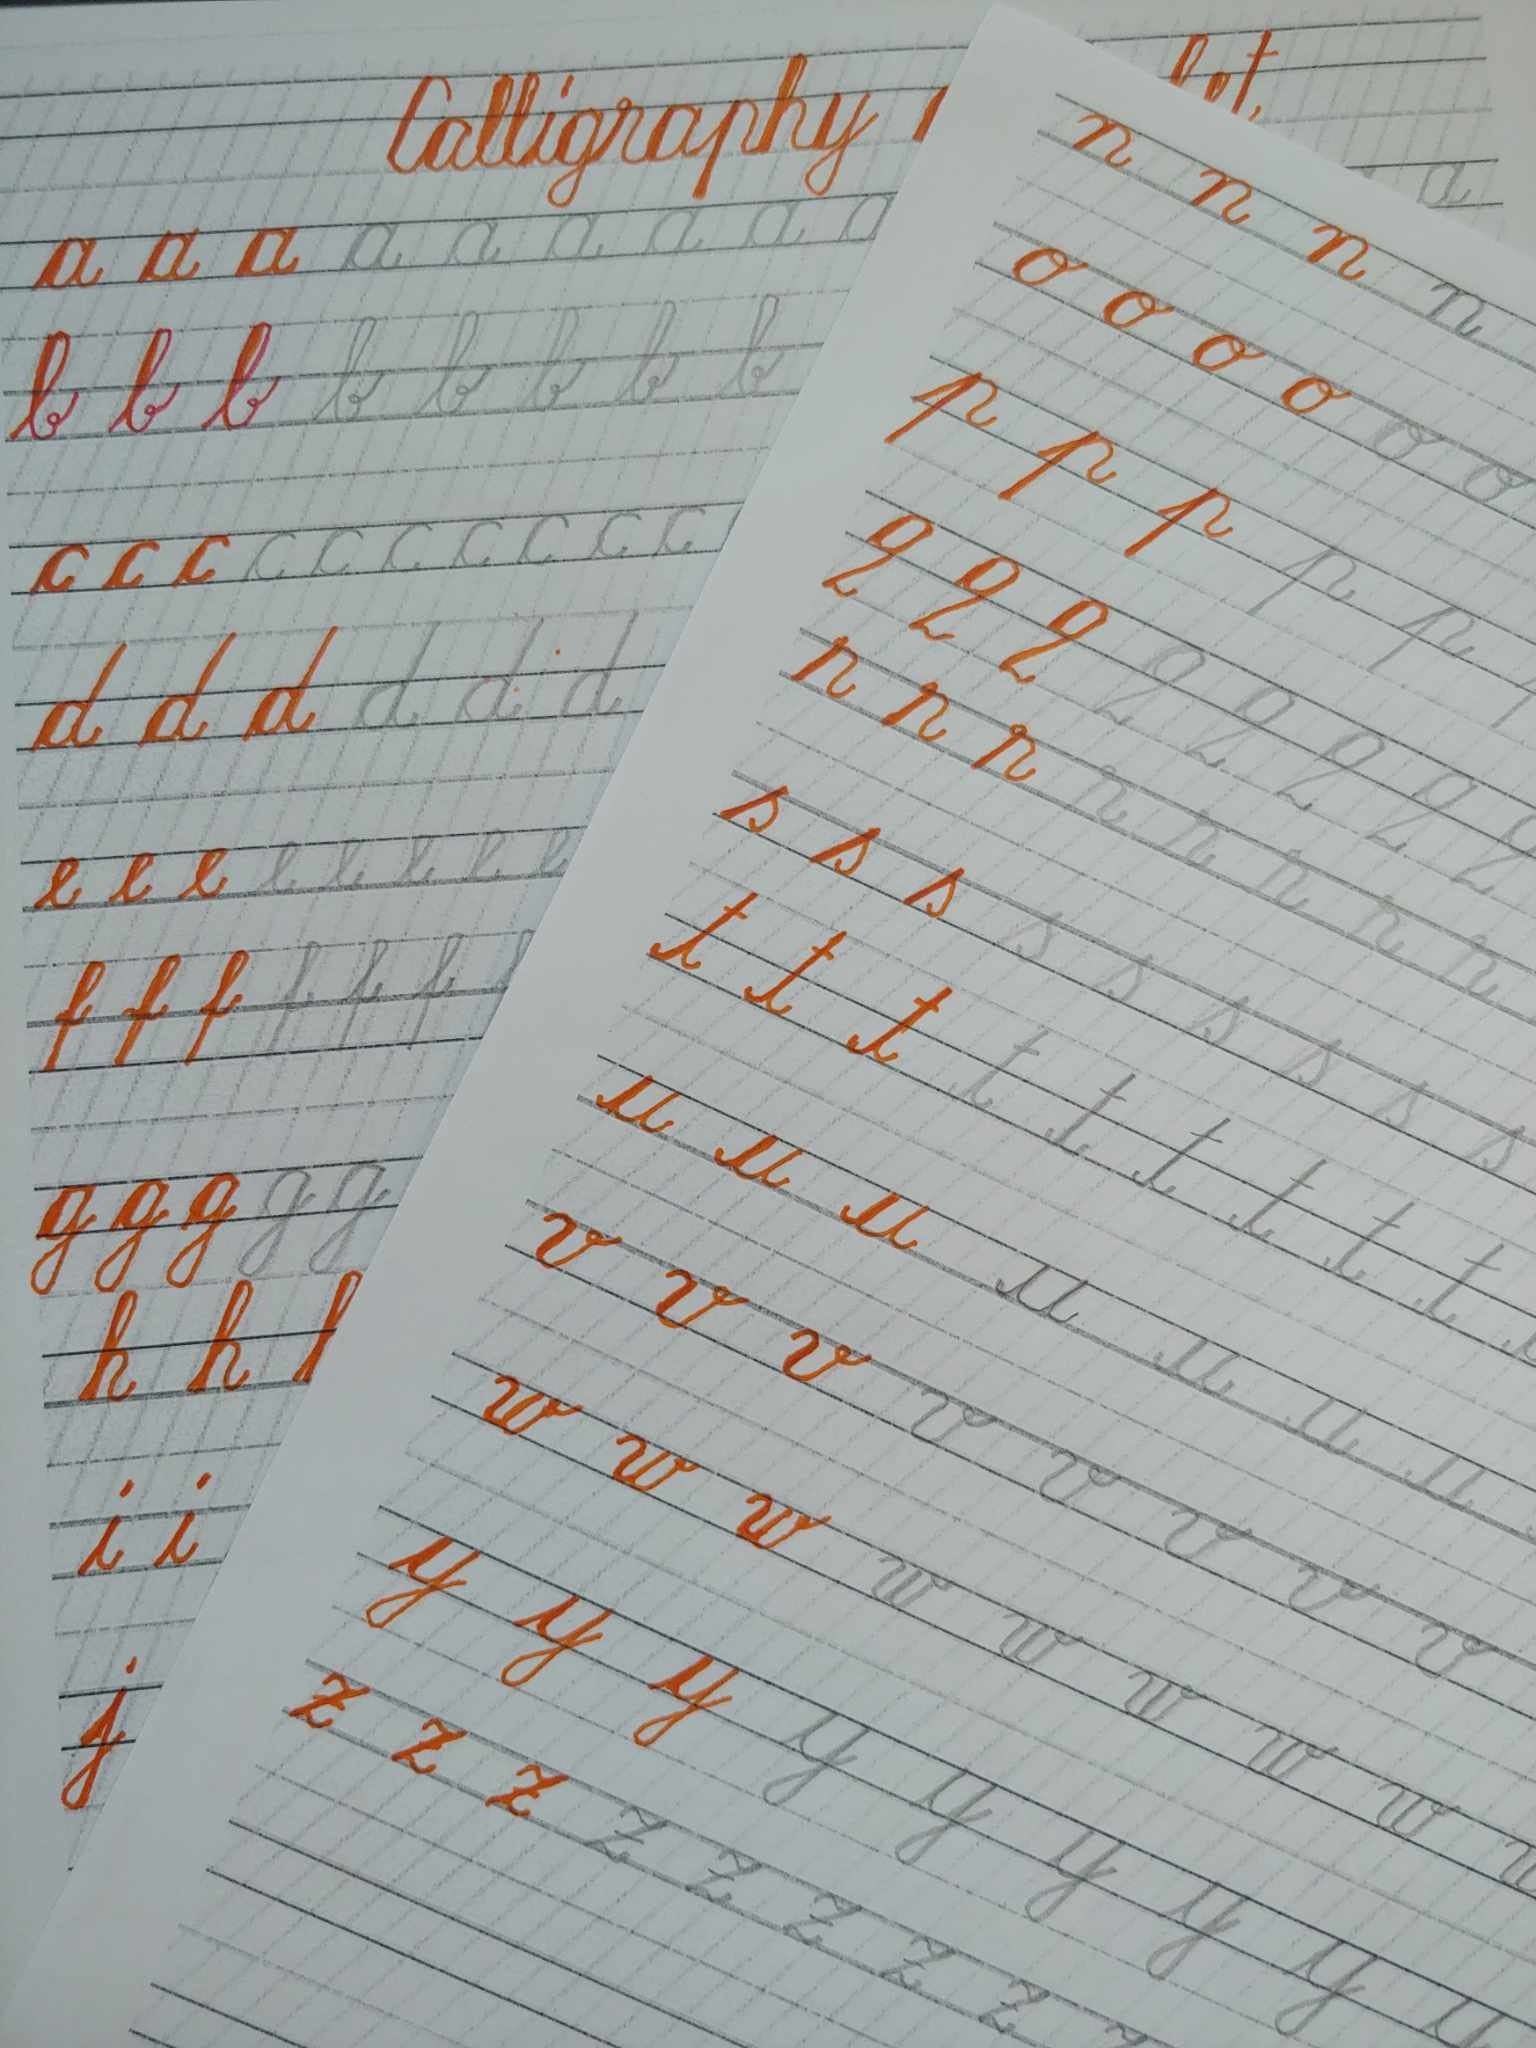 Calligraphy
a a a a a a a a a a
b b b b b b b b
c c c c c c c c c c
d d d d d d
e e e e e e e e
f f f f f f
g g g g g
h h
i i
j
n n n n
o o o o o o
p p p p p
q q q q q q q q
r r r r r r r r
s s s s s s s s s
t t t t t t t t t
u u u u u u u
v v v v v v v v
w w w w w w w w
y y y y y y y y y
z z z z z z z z